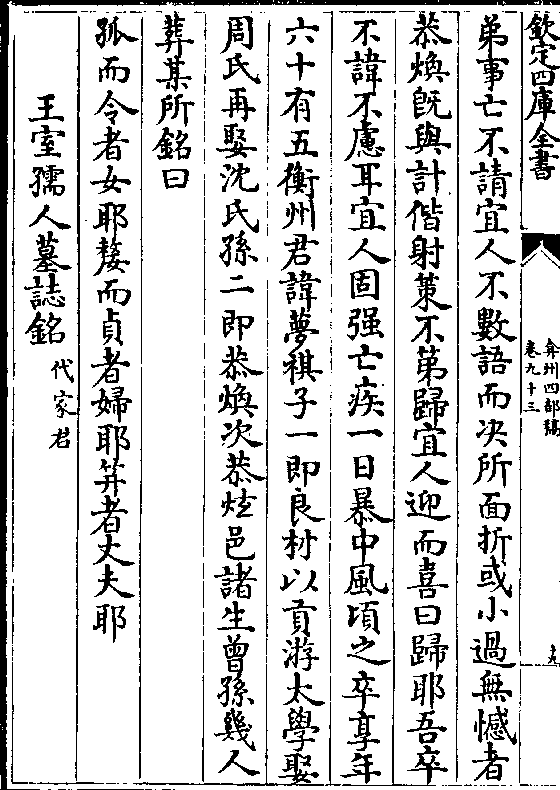 欽定四庫全書
弇州四部稿
卷九十三
弟事亡不請宜人不數語而决所面折或小過無憾者
恭煥旣與計偕射策不第歸宜人迎而喜曰歸耶吾卒
不諱不慮耳宜人固强亡疾一日暴中風頃之卒享年
六十有五衡州君諱夢祺子一即良材以貢游太學娶
周氏再娶沈氏孫二即恭煥次恭炫邑諸生曾孫幾人
葬某所銘曰
孤而令者女耶嫠而貞者婦耶笄者丈夫耶
王室孺人墓誌銘代家君